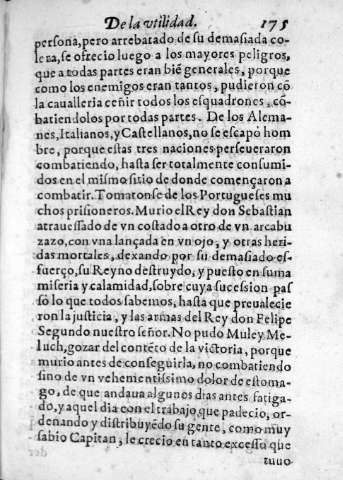 De la vtilidad. 175
persona, pero arrebatado de su demasiada co-
lera, se ofrecio luego a los mayores peligros,
que a todas partes eran biē generales, porque
como los enemigos eran tantos, pudieron cō
la cauallleria ceñir todos los esquadrones, cō-
batiendolos por todas partes. De los Alema-
nes, Italianos, y Castellanos, no se escapò hom
bre, porque estas tres naciones perseueraron
combatiendo, hasta ser totalmente consumi-
dos en el mismo sitio de donde començaron a
combatir. Tomaronse de los Portugueses mu
chos prisioneros. Murio el Rey don Sebastian
atrauessado de vn costado a otro de vn arcabu
zazo, con vna lançada en vn ojo, y otras heri-
das mortales, dexando por su demasiado es-
fuerço, su Reyno destruydo, y puesto en suma
miseria y calamidad, sobre cuya sucession pas
sò lo que todos sabemos, hasta que preualecie
ron la justicia, y las armas del Rey don Felipe
Segundo nuestro señor. No pudo Muley Me-
luch, gozar del contēto de la victoria, porque
murio antes de conseguirla, no combatiendo
sino de vn vehementissimo dolor de estoma-
go, de que andaua algunos dias antes fatiga-
do, y aquel dia con el trabajo que padecio, or-
denando y distribuyēdo su gente, como muy
sabio Capitan, le crecio en tanto excesso que
tuuo